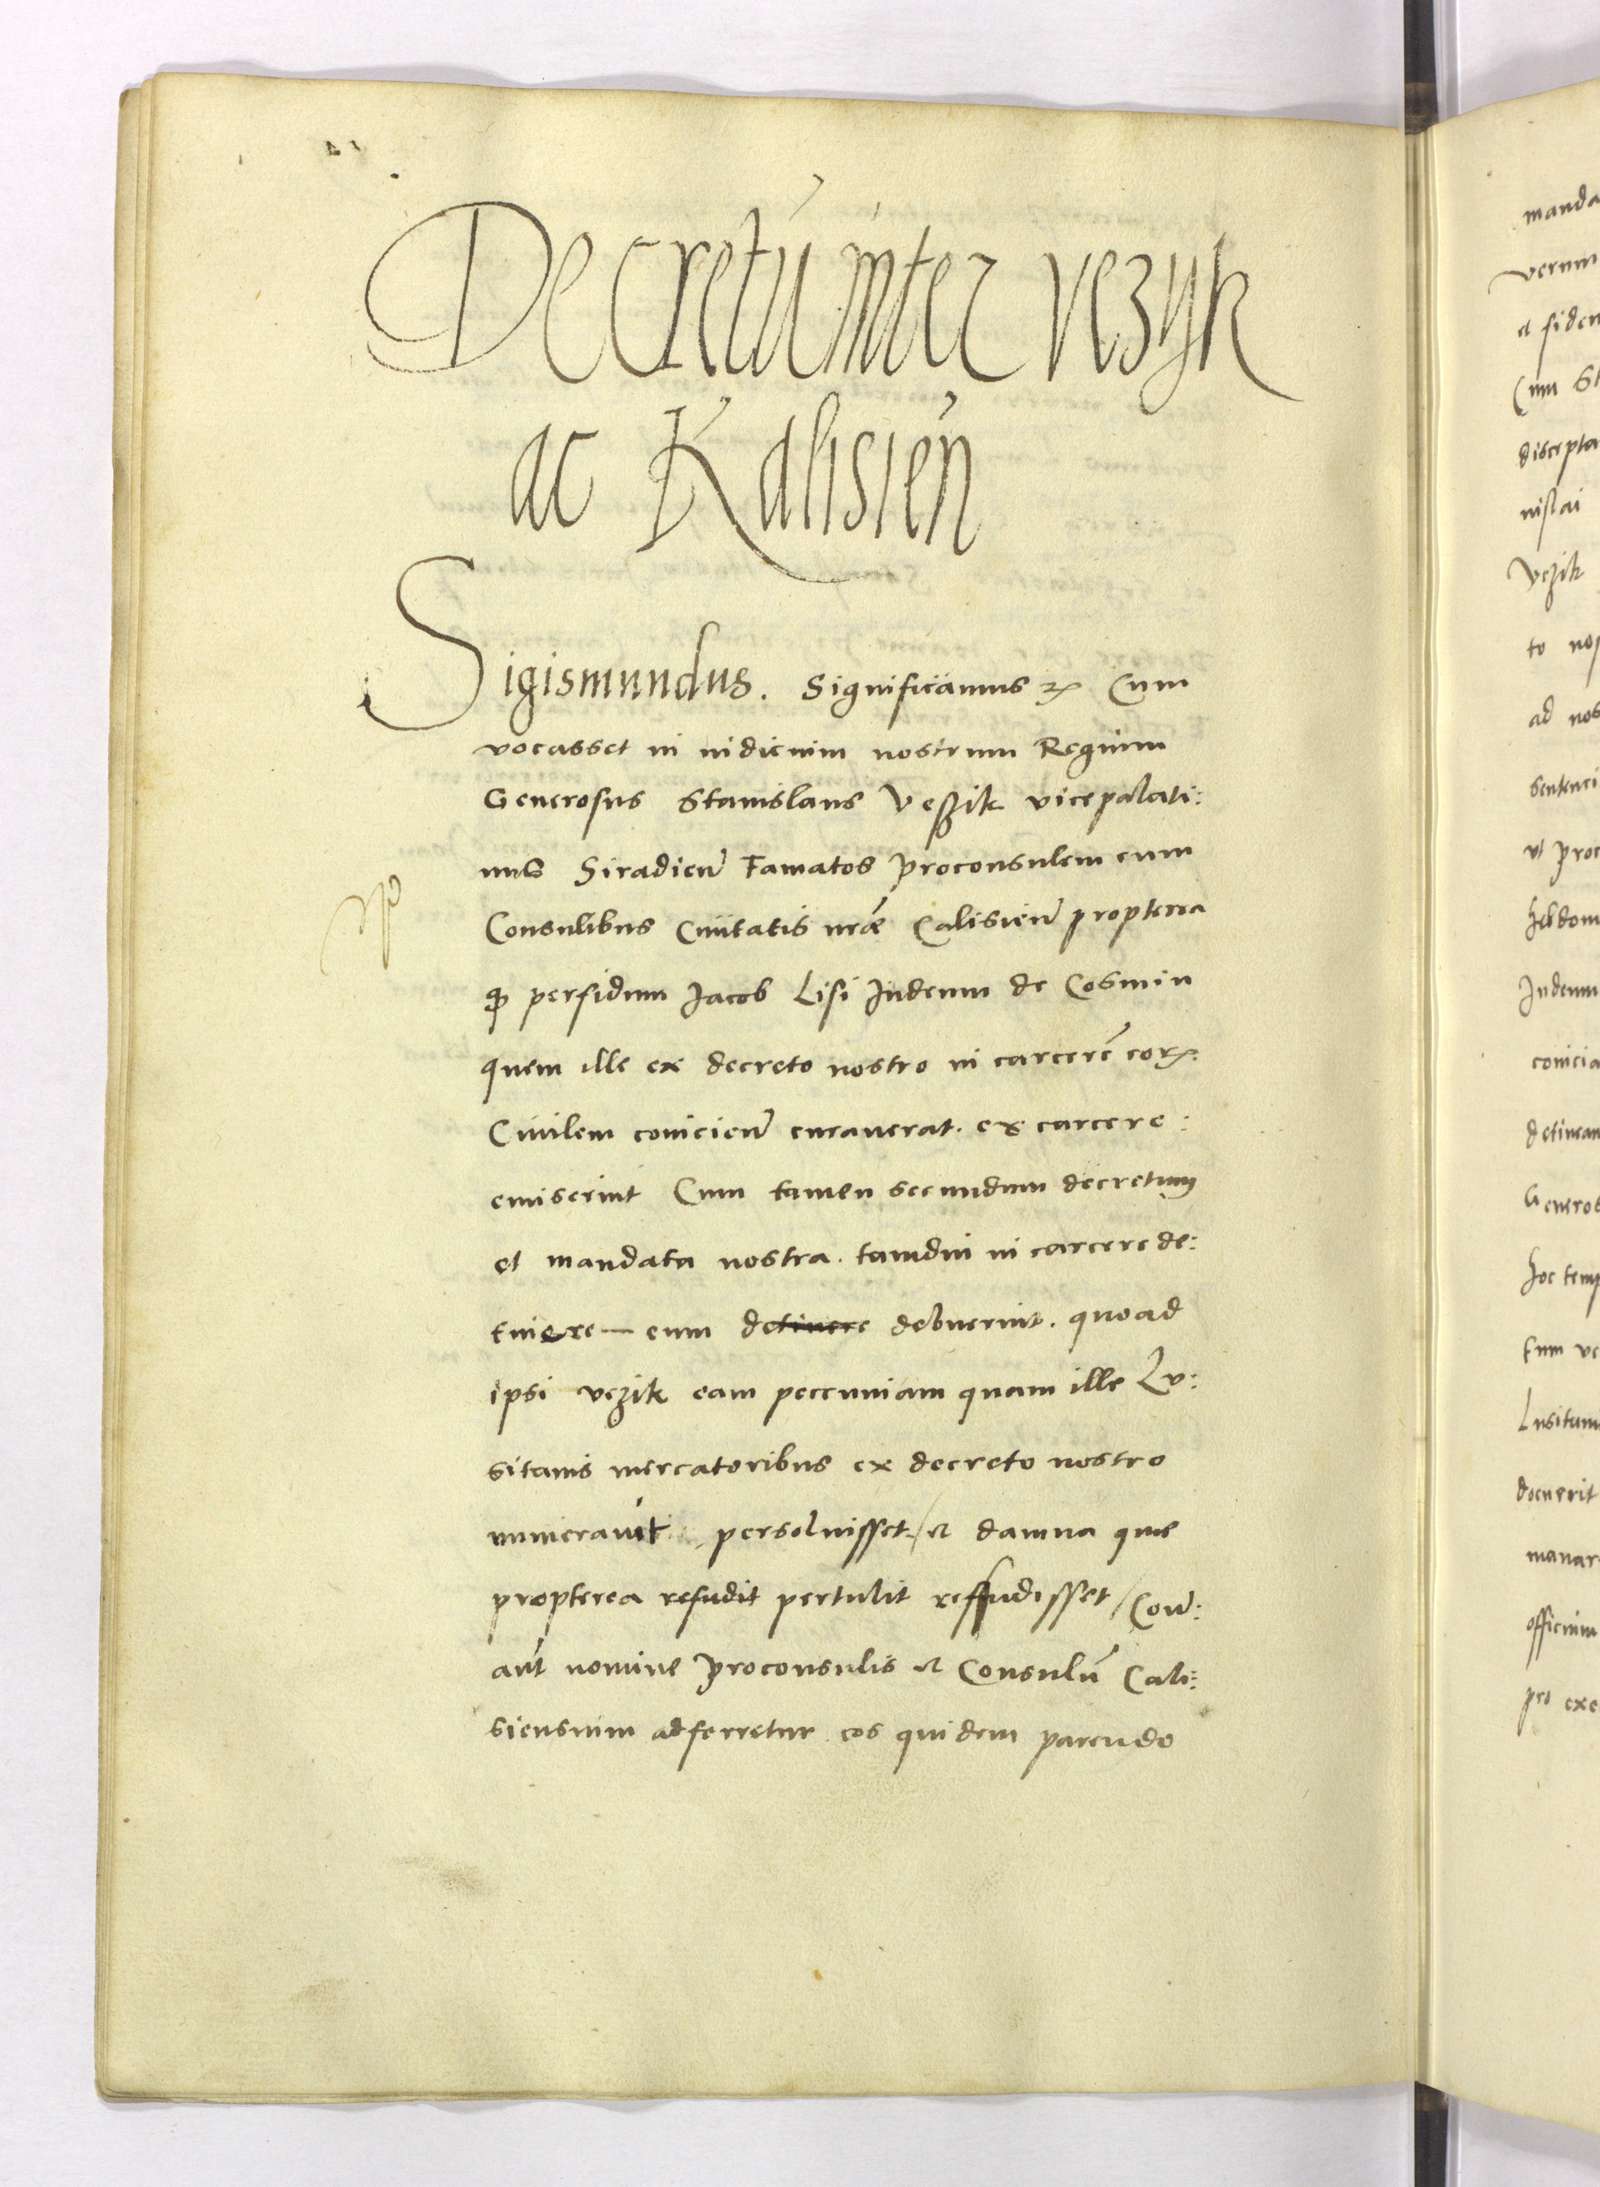 Decretu inter vezyk
ac Kalisien
Sigismundus. Significamus Cum
vocasset in iudicium nostrum Regium
Generosus Stanislaus Veßik vicepalati:
nus Siradien Famatos proconsulem cum
Consulibus Civitatis nrae Calisien propterea
perfidum Jacob Lisi Judeum de Cosmin
quem ille ex decreto nostro in carcere eor
Civilem coniicien curaverat. ex carcere:
emiserint Cum tamen secundum decretum
et mandata nostra. tamdiu in carcere de:
tinere eum detinere debuerint. quoad
ipsi vezik eam peccuniam quam ille Lu:
sitanis mercatoribus ex decreto nostro
numeravit persoluisset et damna que
propterea refudit pertulit reffudisset / Con:
aut nomine proconsulis et Consulu Cali:
siensium adferretur eos quidem parendo
manda
verum
et fidem
Cum St
discepta
nislai
Vezik
to nos
ad nos
sentenci
ut proc
hebdom
Judeum
conicia
detinean
Generos
hoc temp
tum ve
Lusitani
docuerit
manar
officium
pro exe